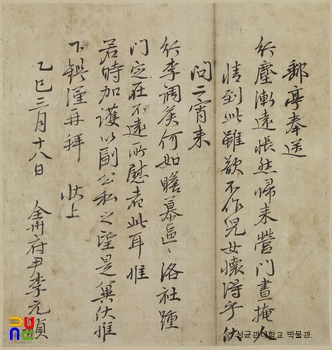 郵亭奉送
行塵漸遠悵然歸來營門晝掩人
情到此雖欲不作兒女懷得乎伏
問二宵來
行李調候何如瞻慕區〻洛社踵
門定在不遠所慰者此耳惟
若時加護以副公私之望是冀伏惟
下鑑謹再拜 狀上
乙巳三月十八日 全州府尹李元禎
성균관대학교 박물관